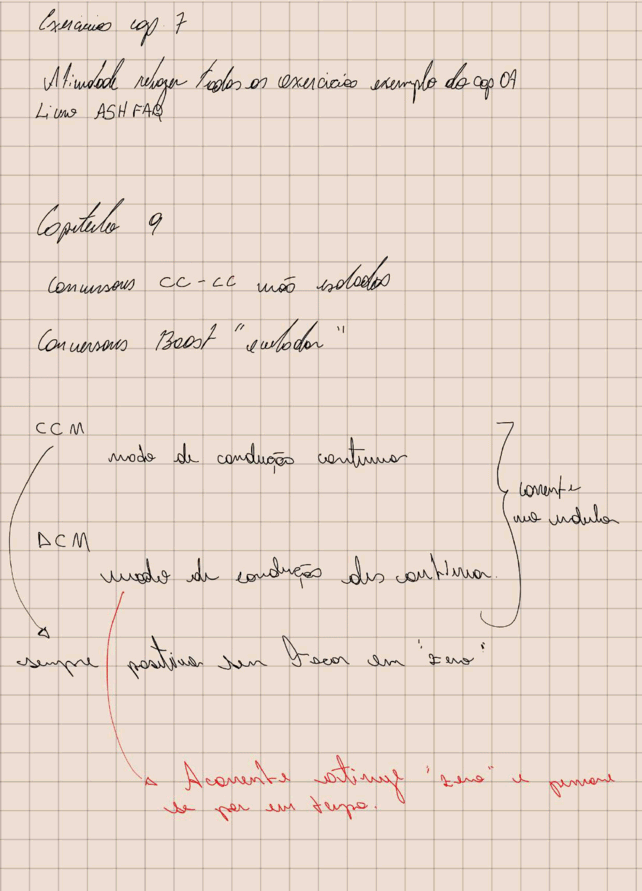 Exercicios cap. 7
Atividade refazer todos os exercicios exemplo do cap 07
Livro ASHFAQ
Capitulo 9
Conversores CC-CC não isolados
Conversores Boost "elevador"
CCM
modo de condução continua
corrente
no indutor
DCM
modo de condução descontinua.
sempre positiva sem tocar em "zero"
A corrente atinge "zero" e permane
se por um tempo.